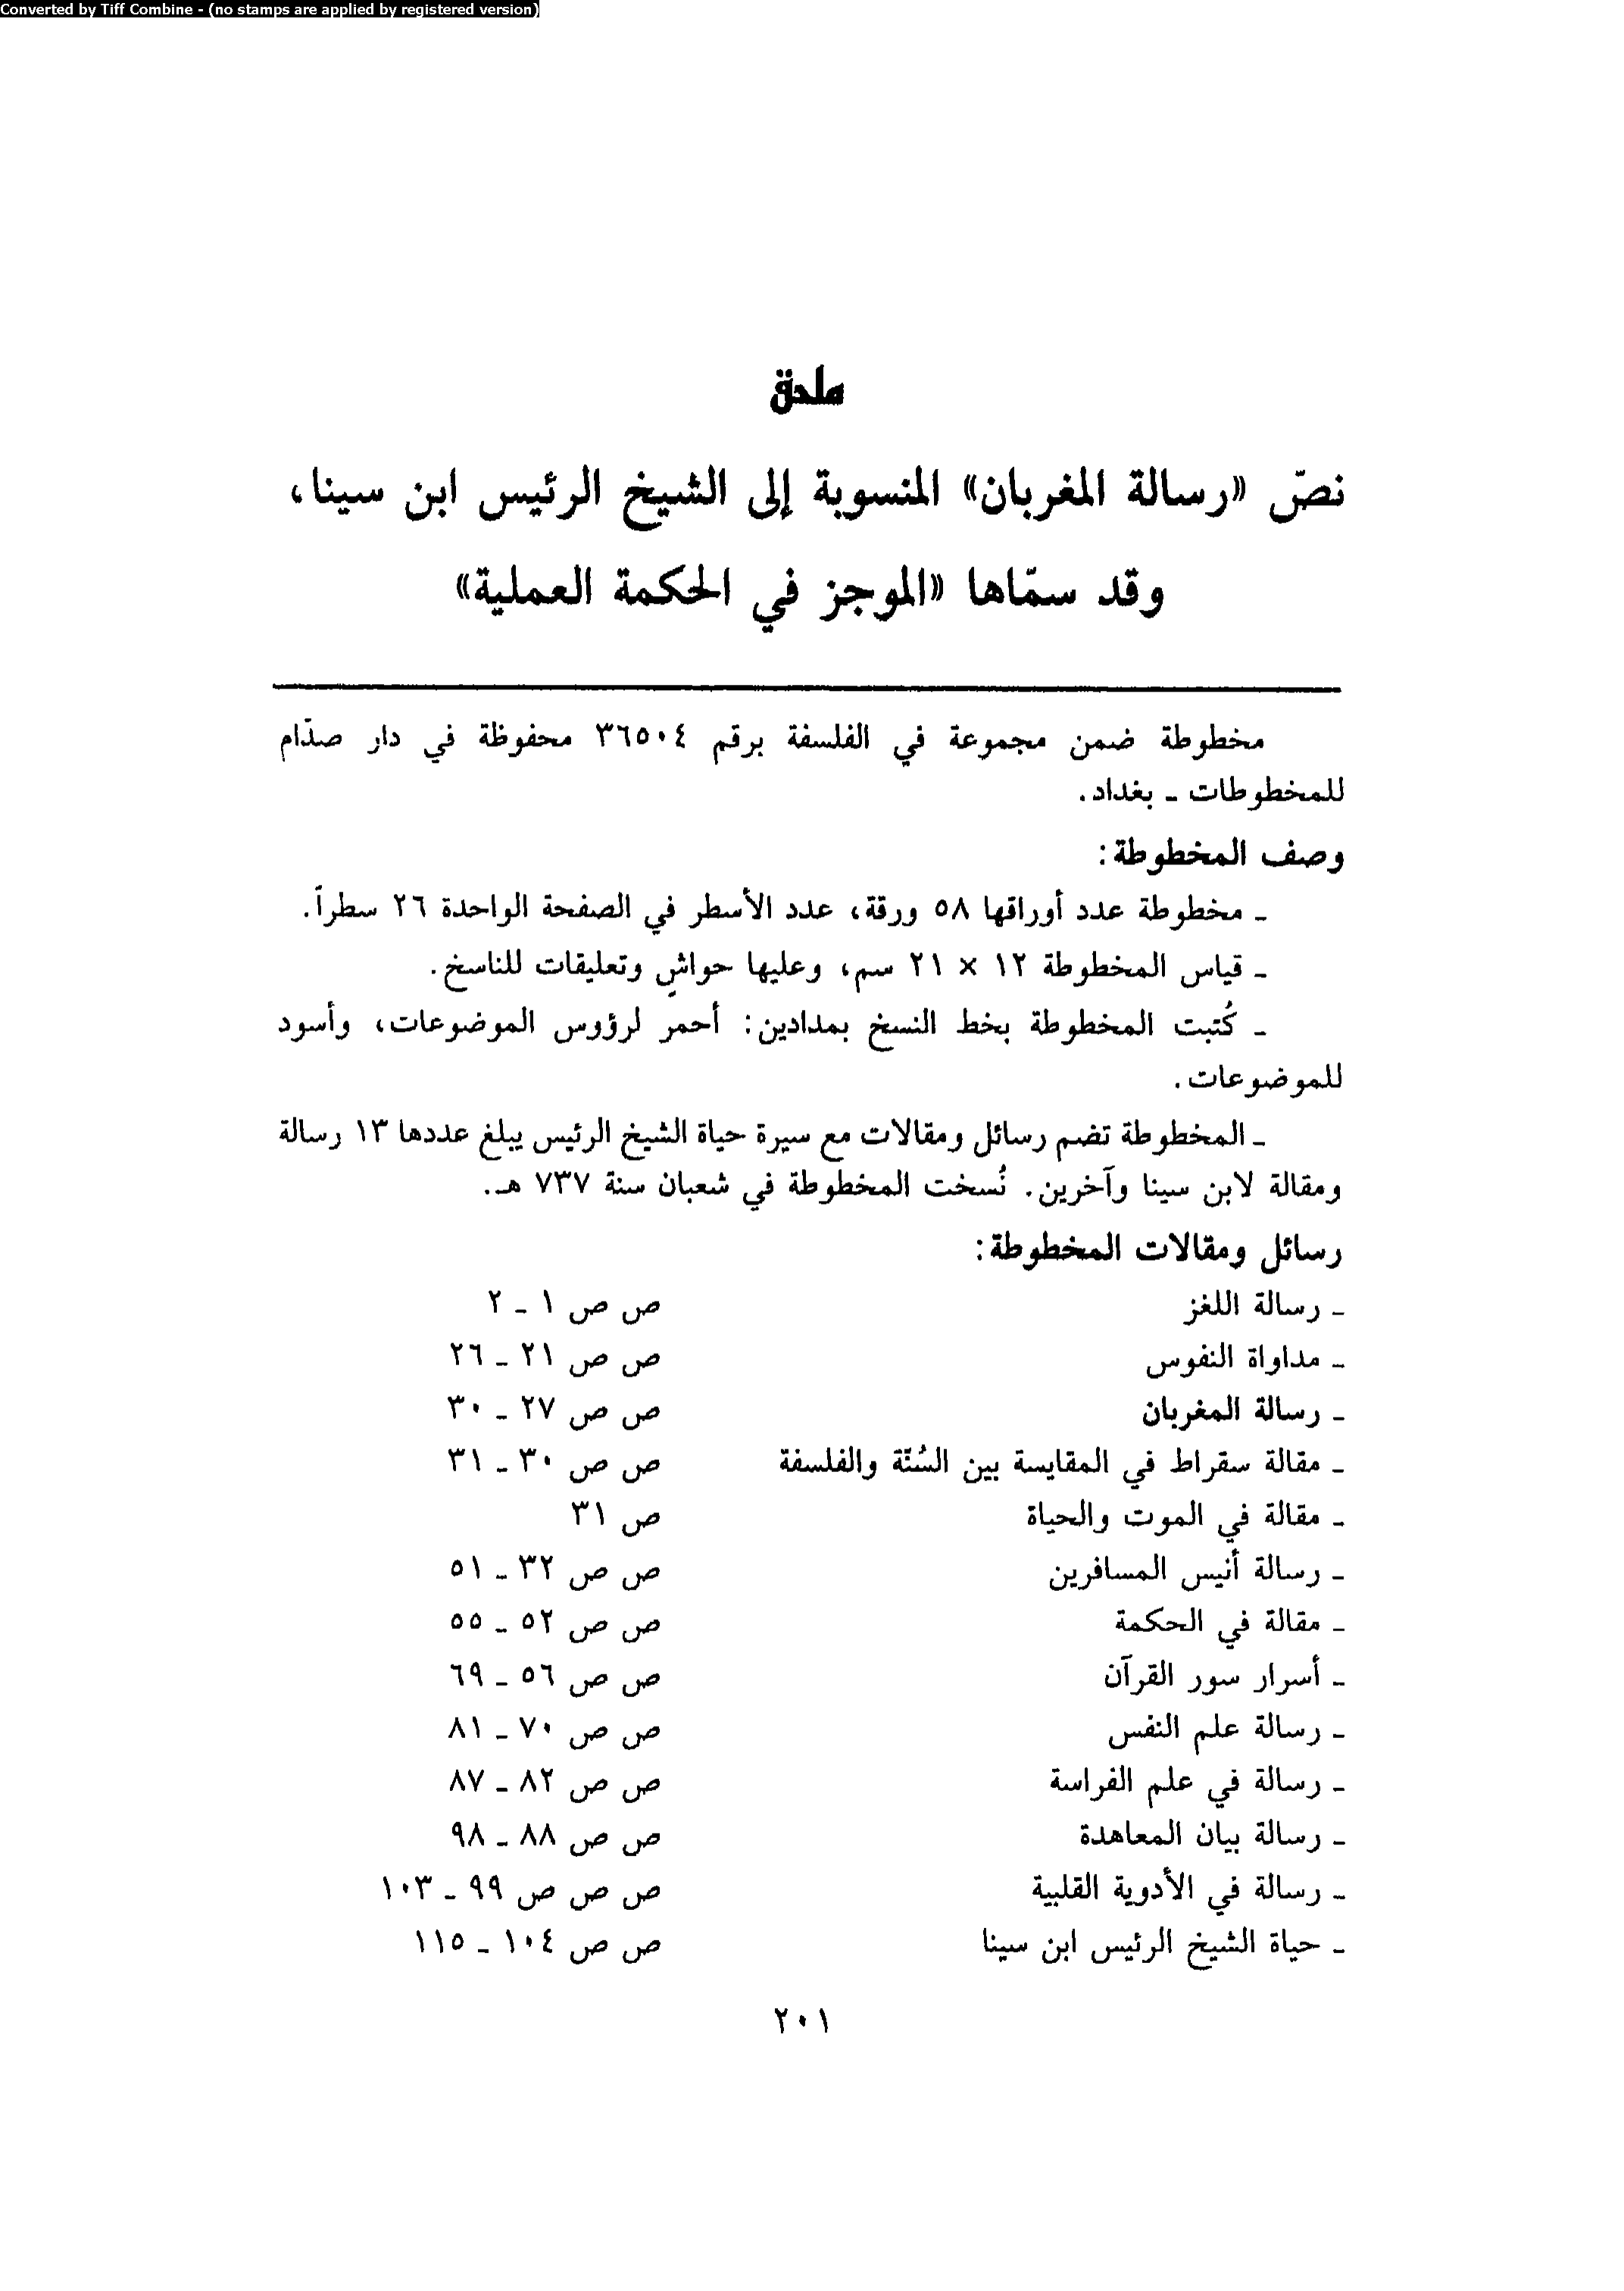 Converted by Tiff Combine - (no stamps are applied by registered version)
ملحق
نصّ «رسالة المغربان» المنسوبة إلى الشيخ الرئيس ابن سينا،
وقد سمّاها «الموجز في الحكمة العملية»
مخطوطة ضمن مجموعة في الفلسفة برقم ٣٦٥٠٤ محفوظة في دار صدّام
للمخطوطات ـ بغداد.
وصف المخطوطة:
ـ مخطوطة عدد أوراقها ٥٨ ورقة، عدد الأسطر في الصفحة الواحدة ٢٦ سطراً.
ـ قياس المخطوطة ١٢ × ٢١ سم، وعليها حواشٍ وتعليقات للناسخ.
ـ كُتبت المخطوطة بخط النسخ بمدادين: أحمر لرؤوس الموضوعات، وأسود
للموضوعات.
ـ المخطوطة تضم رسائل ومقالات مع سيرة حياة الشيخ الرئيس يبلغ عددها ١٣ رسالة
ومقالة لابن سينا وآخرين. نُسخت المخطوطة في شعبان سنة ٧٣٧ هـ.
رسائل ومقالات المخطوطة:
ـ رسالة اللغز ص ص ١ ـ ٢
ـ مداواة النفوس ص ص ٢١ ـ ٢٦
ـ رسالة المغربان ص ص ٢٧ ـ ٣٠
ـ مقالة سقراط في المقايسة بين السُنّة والفلسفة ص ص ٣٠ ـ ٣١
ـ مقالة في الموت والحياة ص ٣١
ـ رسالة أنيس المسافرين ص ص ٣٢ ـ ٥١
ـ مقالة في الحكمة ص ص ٥٢ ـ ٥٥
ـ أسرار سور القرآن ص ص ٥٦ ـ ٦٩
ـ رسالة علم النفس ص ص ٧٠ ـ ٨١
ـ رسالة في علم الفراسة ص ص ٨٢ ـ ٨٧
ـ رسالة بيان المعاهدة ص ص ٨٨ ـ ٩٨
ـ رسالة في الأدوية القلبية ص ص ص ٩٩ ـ ١٠٣
ـ حياة الشيخ الرئيس ابن سينا ص ص ١٠٤ ـ ١١٥
٢٠١